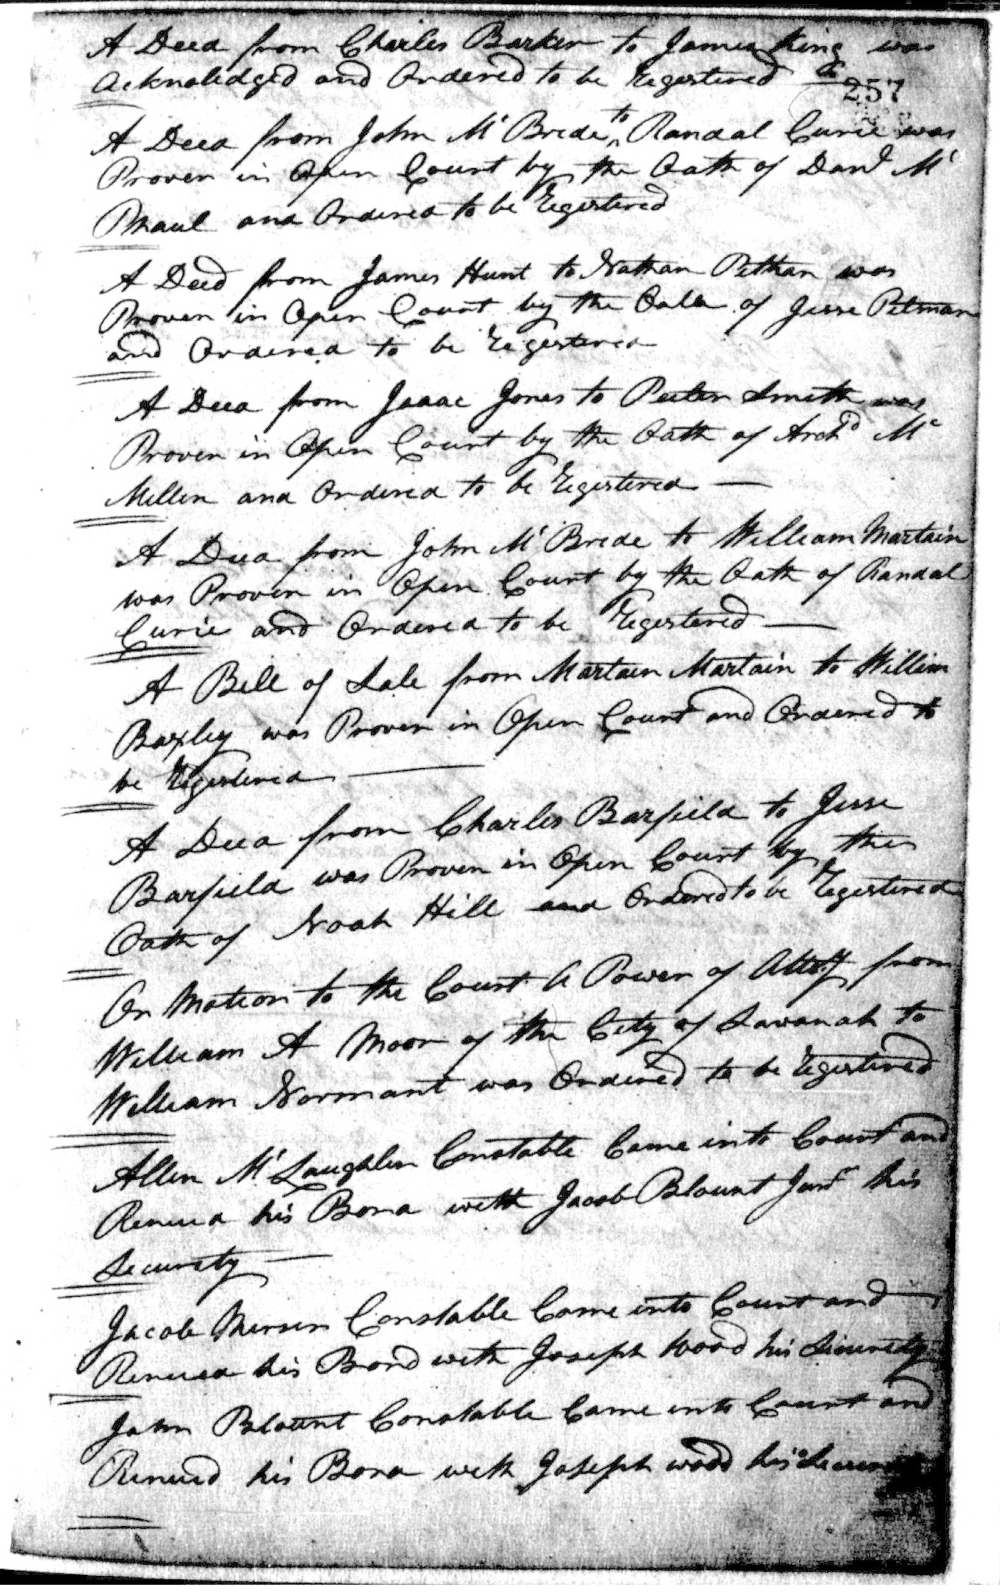 A Deed from Charles Barker to James King was
Acknoledged and Ordered to be Regestered &
257
A Deed from John Mc Bride to Randal Curie was
Proven in Open Court by the Oath of Danl Mc
Phaul and Ordered to be Regestered
A Deed from James Hunt to Nathan Pitman was
Proven in Open Court by the Oath of Jesse Pitman
and Ordered to be Regestered
A Deed from Isaac Jones to Peeter Smith was
Proven in Open Court by the Oath of Archd Mc
Millen and Ordered to be Regestered
A Deed from John Mc Bride to William Martain
was Proven in Open Court by the Oath of Randal
Curie and Ordered to be Regestered
A Bill of Sale from Martain Martain to Willim
Baxley was Proven in Open Court and Ordered to
be Regestered
A Deed from Charles Barfield to Jesse
Barfield was Proven in Open Court by the
Oath of Noah Hill and Ordered to be Regestered
On Motion to the Court A Power of Attoy from
William A Moor of the City of Savanah to
William Normant was Ordered to be Regestered
Allen Mc Laughlen Constable Came into Court and
Renued his Bond with Jacob Blount Junr his
Security
Jacob Mercer Constable Came into Court and
Renued his Bond with Joseph Wood his Security
John Blount Constable Came into Court and
Renued his Bond with Joseph wood his